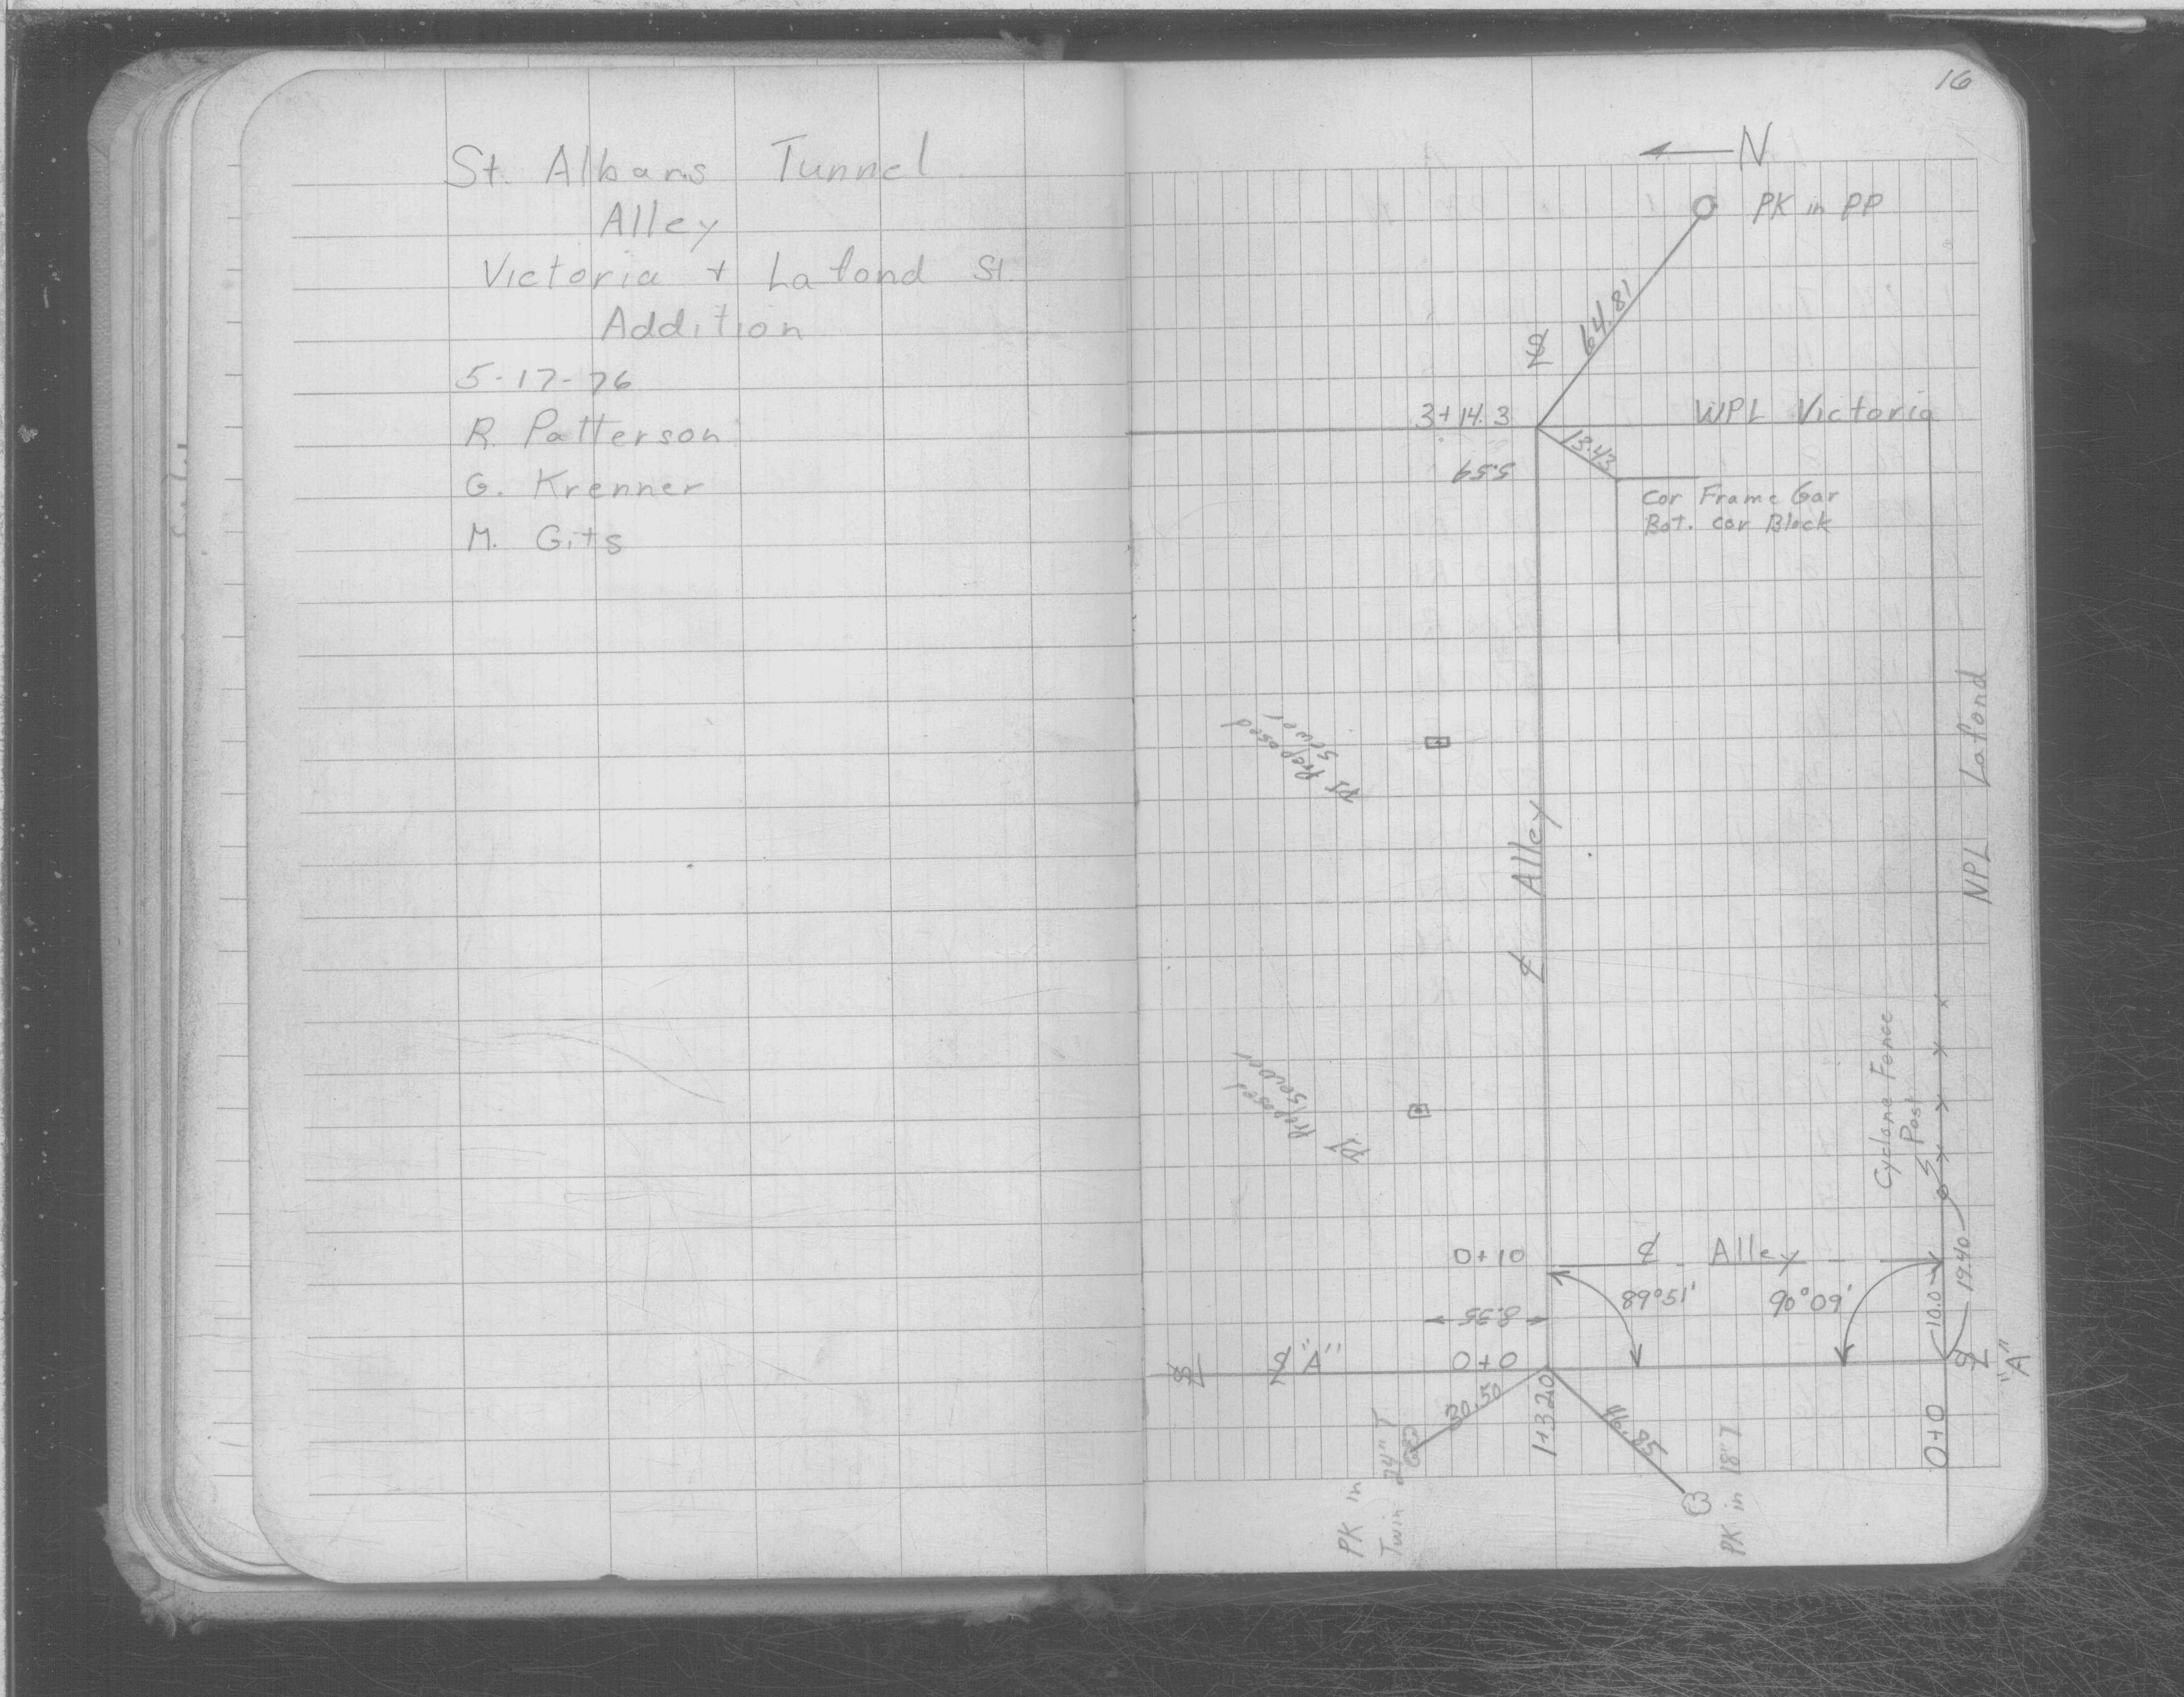 St. Albans Tunnel
Alley
Victoria + Lafond St.
Addition
5-17-76
R. Patterson
G. Krenner
M. Gits
16
N
PK in PP
64.81
3+14.3
WPL Victoria
13.43
5.59
Cor Frame Gar
Bot. cor Block
Proposed
Sewer
℄ Alley
NPL Lafond
Proposed
Sewer
Cyclone Fence
Post
0+10
℄ Alley
89°51'
90°09'
10.0
19.40
8.55
"A"
0+0
℄
"A"
30.50
1+32.0
0+0
PK in
Twin 24" T
PK in 18" T